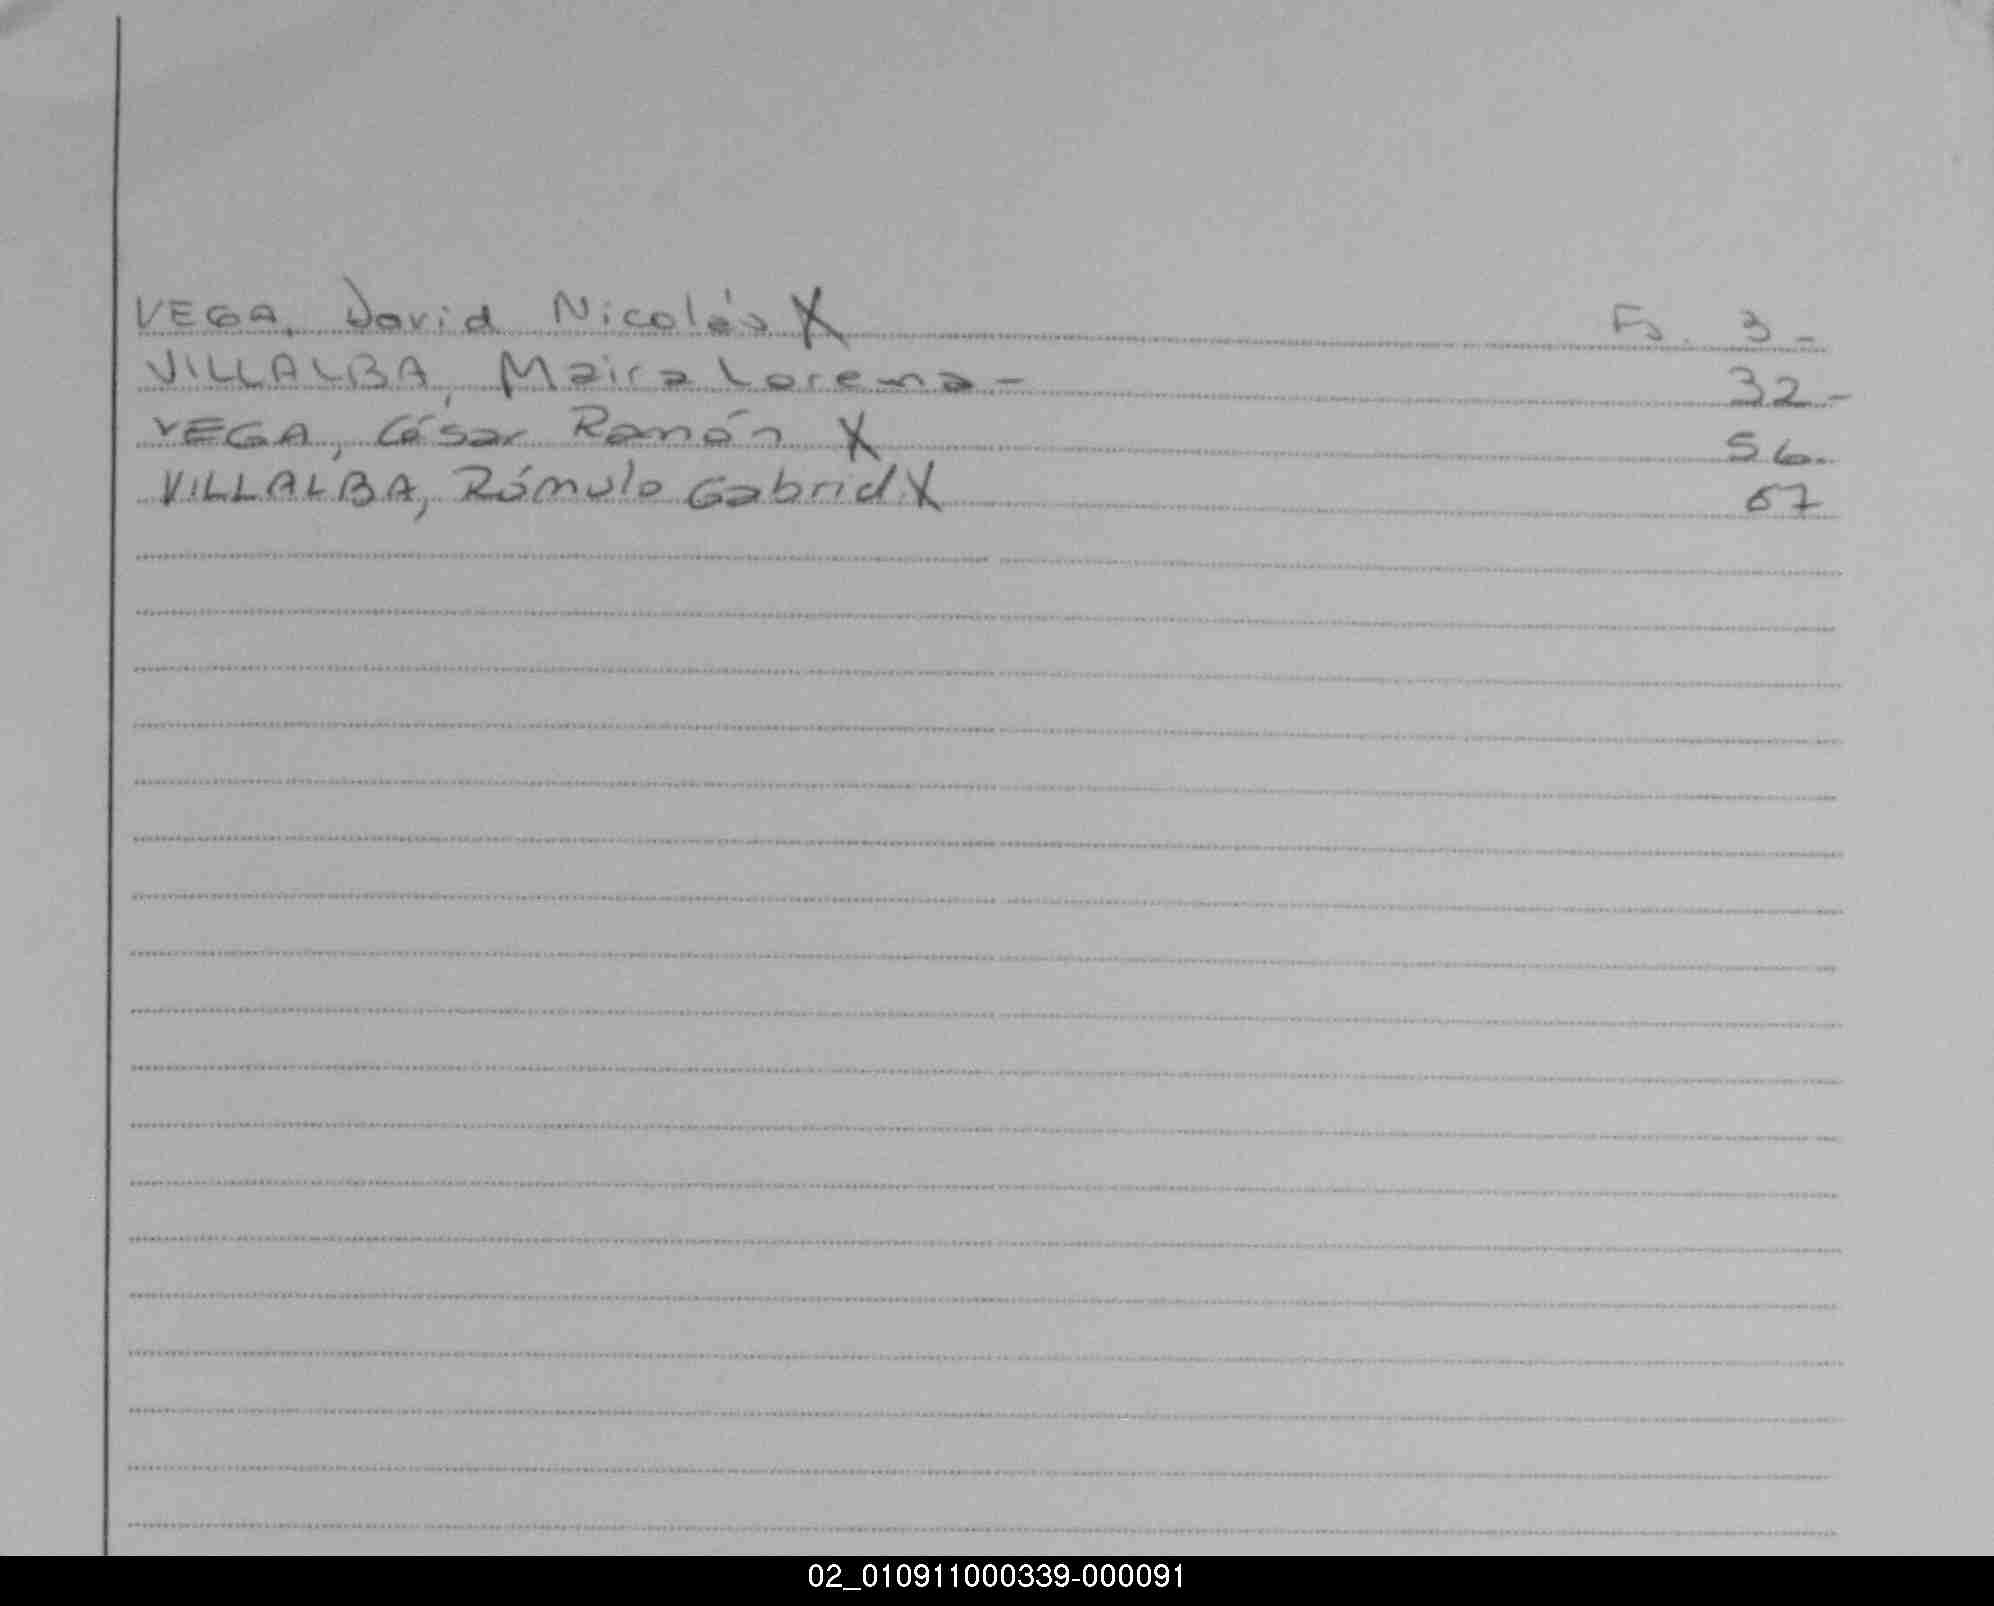 VEGA, David Nicolás X Fs. 3-
VILLALBA, Maira Lorena - 32-
VEGA, César Ramón X 56.
VILLALBA, Rómulo Gabriel X 67
02_010911000339-000091